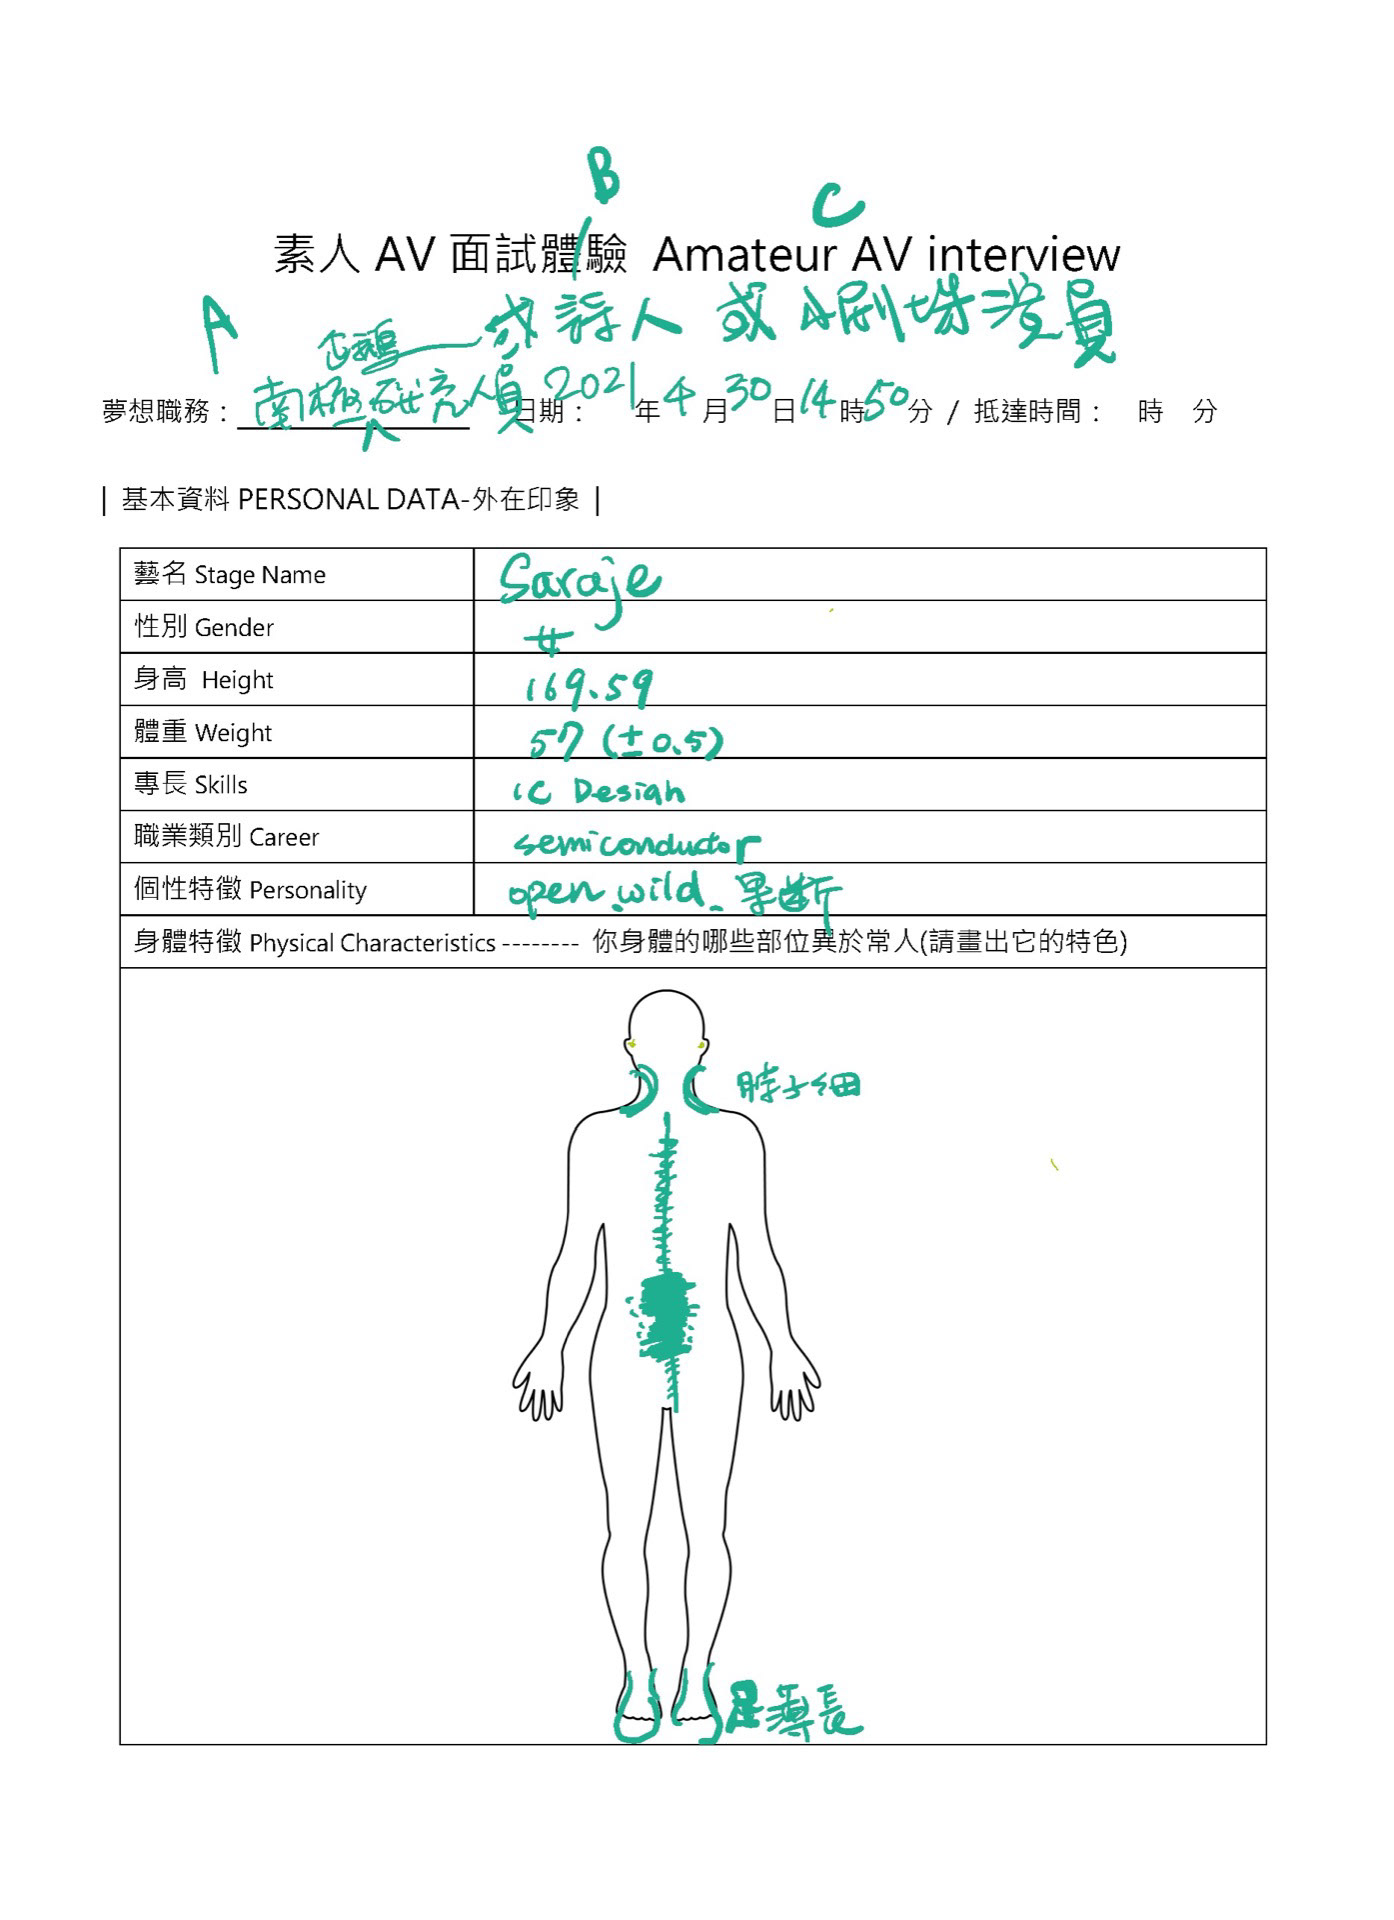 B
C
素人 AV 面試體驗 Amateur AV interview
A
企鵝 或 詩人 或 A 劇場演員
夢想職務：南極研究人員 日期：2021年4月30日14時50分 / 抵達時間： 時 分
| 基本資料 PERSONAL DATA-外在印象 |
藝名 Stage Name Saraje
性別 Gender 女
身高 Height 169.59
體重 Weight 57 (±0.5)
專長 Skills IC Design
職業類別 Career semiconductor
個性特徵 Personality open wild 果斷
身體特徵 Physical Characteristics -------- 你身體的哪些部位異於常人(請畫出它的特色)
脖子細
足薄長